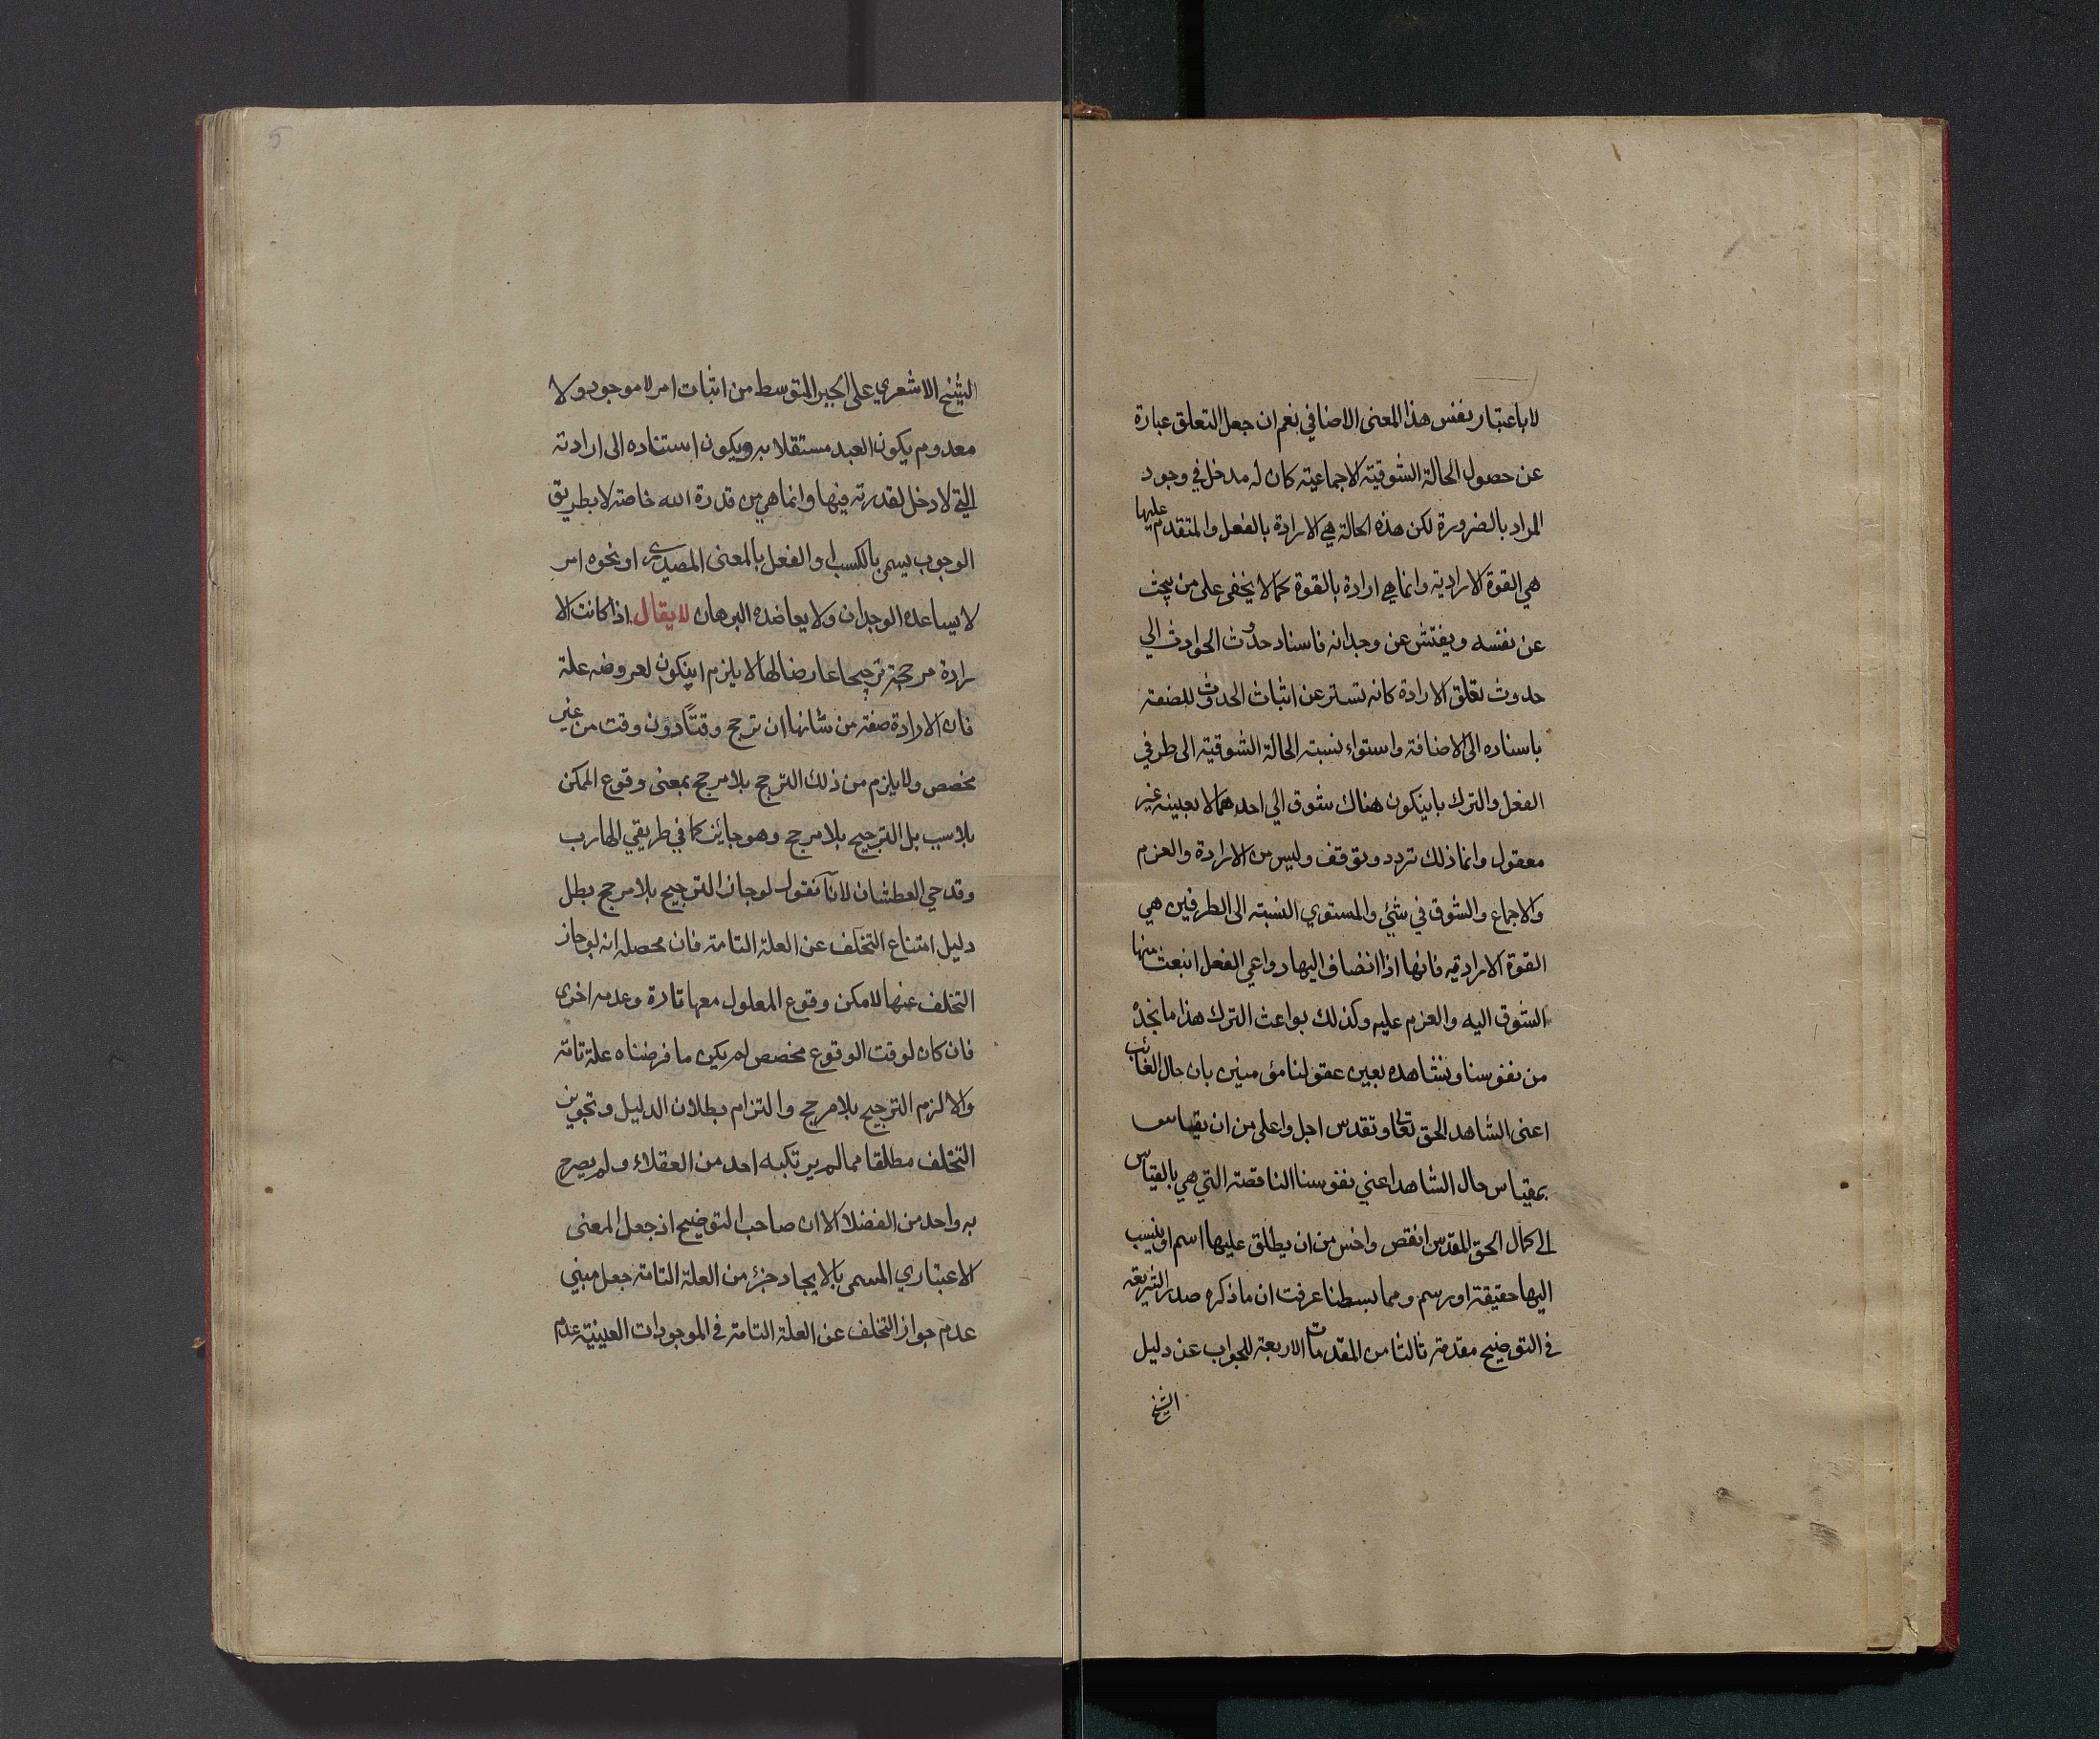 لا باعتبار نفس هذا المعنى الاضافي نعم ان جعل التعلق عبارة
عن حصول الحالة الشوقية الاجماعية كان له مدخل في وجود
المراد بالضرورة لكن هذه الحالة هي الارادة بالفعل والمتقدم عليها
هي القوة الارادية وانما هي ارادة بالقوة كما لا يخفى على من يبحث
عن نفسه ويفتش عن وجدانه فاسناد حدوث الحوادث الي
حدوث تعلق الارادة كانه تستر عن اثبات الحدوث للصفة
باسناده الى الاضافة واستواء نسبة الحالة الشوقية الى طرفي
الفعل والترك باينكون هناك شوق الي احدهما لا بعينه غير
معقول وانما ذلك تردد وتوقف وليس من الارادة والعزم
والاجماع والشوق في شئ والمستوي النسبة الى الطرفين هي
القوة الارادية فانها اذا انضاف اليها دواعي الفعل انبعث منها
الشوق اليه والعزم عليه وكذلك بواعث الترك هذا ما نجده
من نفوسنا ونشاهده بعين عقولنا مؤمنين بان حال الغائب
اعنى الشاهد الحق تعالى وتقدس اجل واعلى من ان يقاس
بمقياس حال الشاهد اعني نفوسنا الناقصة التي هي بالقياس
الى كمال الحق المقدس انقص واخس من ان يطلق عليها اسم او ينسب
اليها حقيقة او رسم ومما بسطنا عرفت ان ما ذكره صدر الشريعة
في التوضيح مقدمة ثالثا من المقدمات الاربعة للجواب عن دليل
الشيخ
5
الشيخ الاشعري على الجبر المتوسط من اثبات امر لا موجود ولا
معدوم يكون العبد مستقلا به ويكون استناده الى ارادته
التي لا دخل لقدرته فيها وانما هي من قدرة الله خاصة لا بطريق
الوجوب يسمى بالكسب او الفعل بالمعنى المصدرى او نحوه امر
لا يساعده الوجدان ولا يعاضده البرهان لا يقال اذا كانت الا
رادة مرجحة ترجيحا عارضا لها لا يلزم اينكون لعروضه علة
فان الارادة صفة من شانها ان ترجح وقتا دون وقت من غير
مخصص ولا يلزم من ذلك الترجح بلا مرجح بمعنى وقوع الممكن
بلا سبب بل الترجيح بلا مرجح وهو جائز كما في طريقي الهارب
وقدحي العطشان لانا نقول لو جاز الترجيح بلا مرجح بطل
دليل امتناع التخلف عن العلة التامة فان محصله انه لو جاز
التخلف عنها لامكن وقوع المعلول معها تارة وعدمه اخرى
فان كان لوقت الوقوع مخصص لم يكن ما فرضناه علة تامة
والا لزم الترجيح بلا مرجح والتزام بطلان الدليل وتجويز
التخلف مطلقا مما لم يرتكبه احد من العقلاء ولم يصرح
به واحد من الفضلا الا ان صاحب التوضيح اذ جعل المعنى
الاعتباري المسمى بالايجاد جزء من العلة التامة جعل مبني
عدم جواز التخلف عن العلة التامة في الموجودات العينية عدم